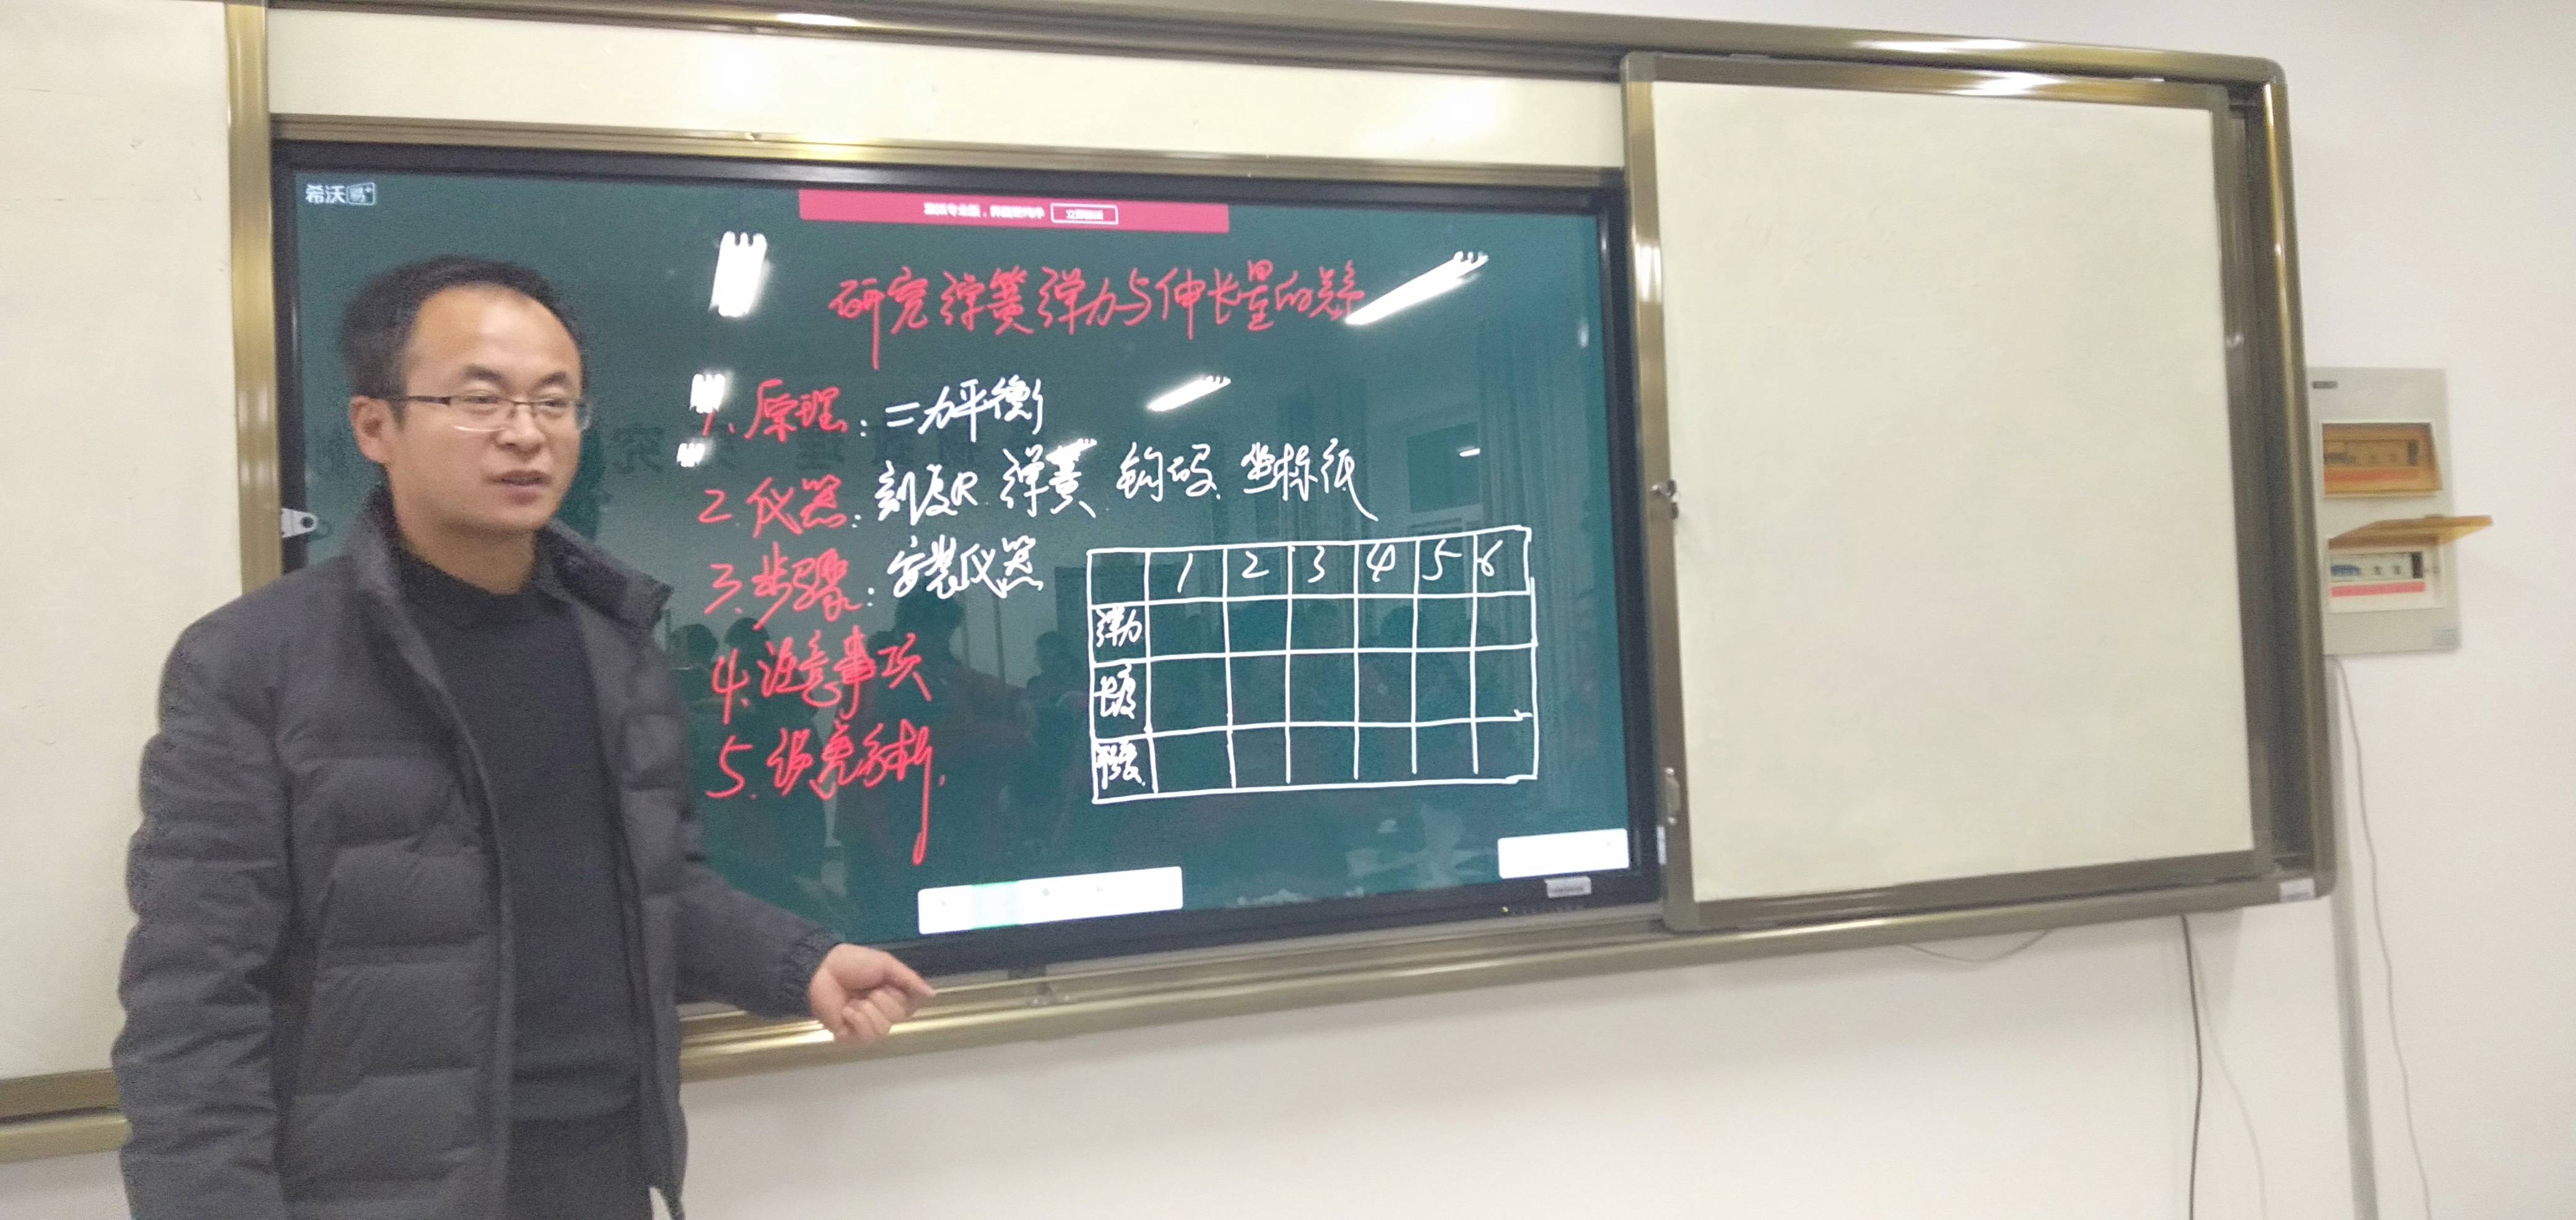 希沃易+
研究弹簧弹力与伸长量的关系
1、原理：二力平衡
2.仪器：刻度尺.弹簧.钩码.坐标纸
3.步骤：安装仪器
1 2 3 4 5 6
弹力
长度
形变
4.注意事项
5.误差分析.